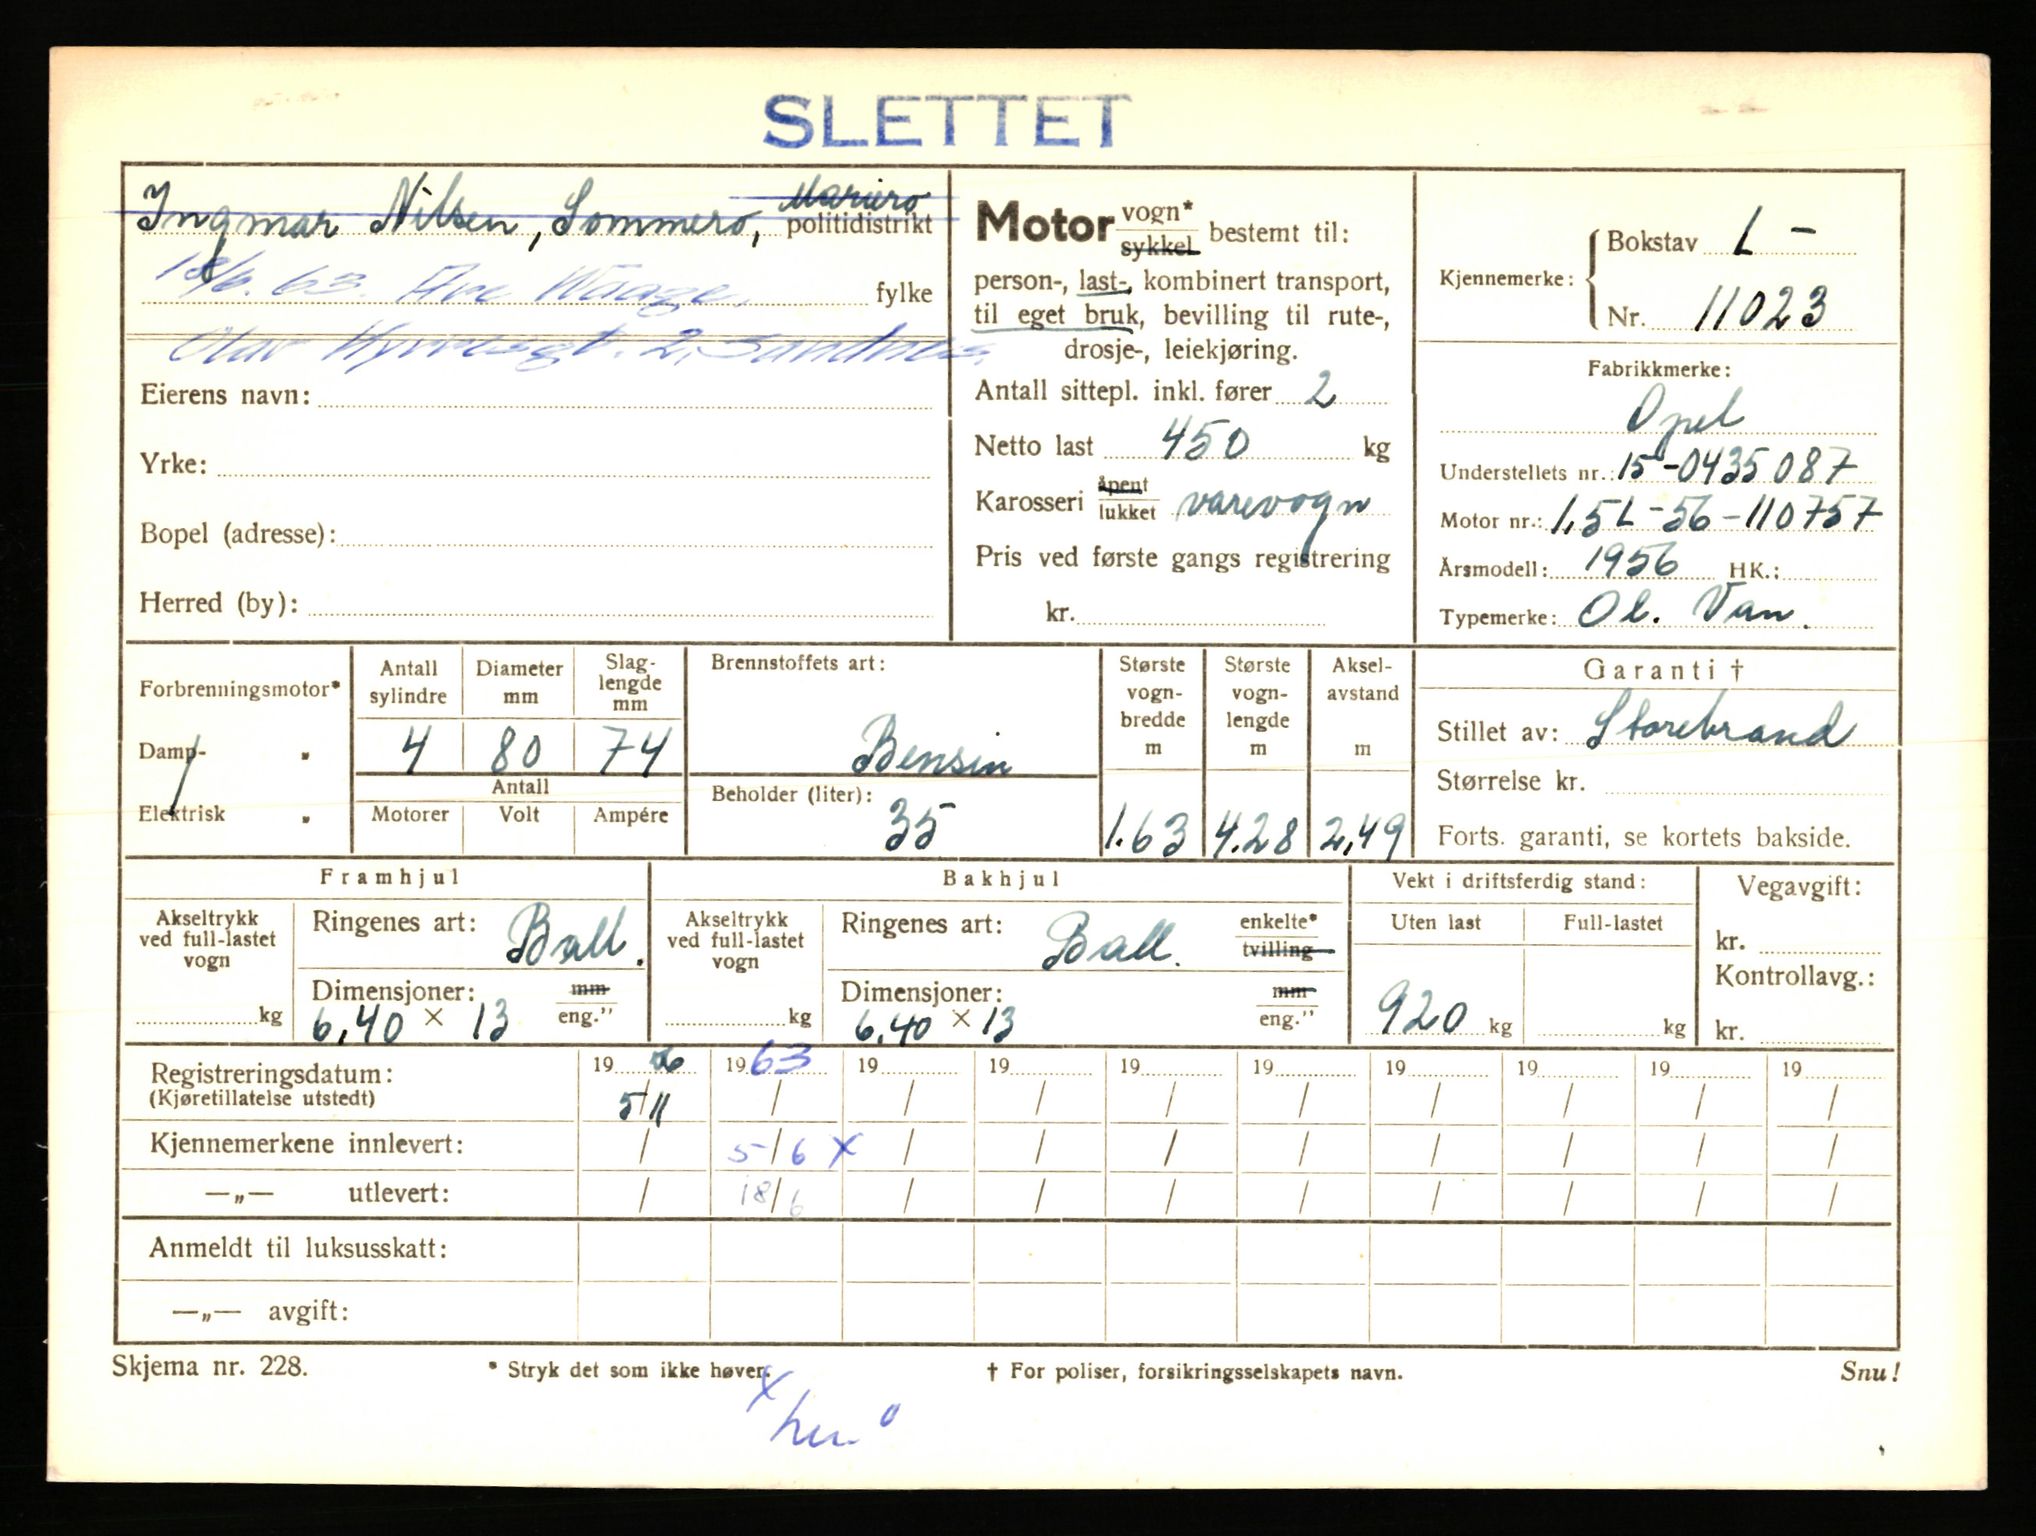 SLETTET
Ingmar Nilsen, Sommero, Mariero politidistrikt
18/6.63. Are Waage. fylke
Olav Kyrresgt. 2, Sandnes
Eierens navn:
Yrke:
Bopel (adresse):
Herred (by):
Motor vogn* sykkel bestemt til:
person-, last-, kombinert transport,
til eget bruk, bevilling til rute-,
drosje-, leiekjøring.
Antall sittepl. inkl. fører 2
Netto last 450 kg
Karosseri åpent lukket varevogn
Pris ved første gangs registrering
kr.
Kjennemerke:
Bokstav L -
Nr. 11023
Fabrikkmerke:
Opel
Understellets nr.: 15-0435087
Motor nr.: 1,5L-56-110757
Årsmodell: 1956 HK.:
Typemerke: Ol. Van.
Forbrenningsmotor*
Damp- "
Elektrisk "
Antall sylindre
Diameter mm
Slaglengde mm
4 80 74
Antall
Motorer Volt Ampére
Brennstoffets art:
Bensin
Beholder (liter):
35
Største vogn-bredde m
1.63
Største vogn-lengde m
4.28
Aksel-avstand m
2,49
Garanti †
Stillet av: Storebrand
Størrelse kr.
Forts. garanti, se kortets bakside.
Framhjul
Akseltrykk ved full-lastet vogn
kg
Ringenes art: Ball.
Dimensjoner: mm eng."
6,40 × 13
Bakhjul
Akseltrykk ved full-lastet vogn
kg
Ringenes art: Ball. enkelte* tvilling
Dimensjoner: mm eng."
6,40 × 13
Vekt i driftsferdig stand:
Uten last Full-lastet
920 kg kg
Vegavgift:
kr.
Kontrollavg.:
kr.
Registreringsdatum: 19 56 19 63 19 19 19 19 19 19 19 19
(Kjøretillatelse utstedt) 5/11 / / / / / / / / /
Kjennemerkene innlevert: / 5/6 x / / / / / / / /
—„— utlevert: / 18/6 / / / / / / / /
Anmeldt til luksusskatt:
—„— avgift:
Skjema nr. 228. * Stryk det som ikke høver. † For poliser, forsikringsselskapets navn. Snu!
x